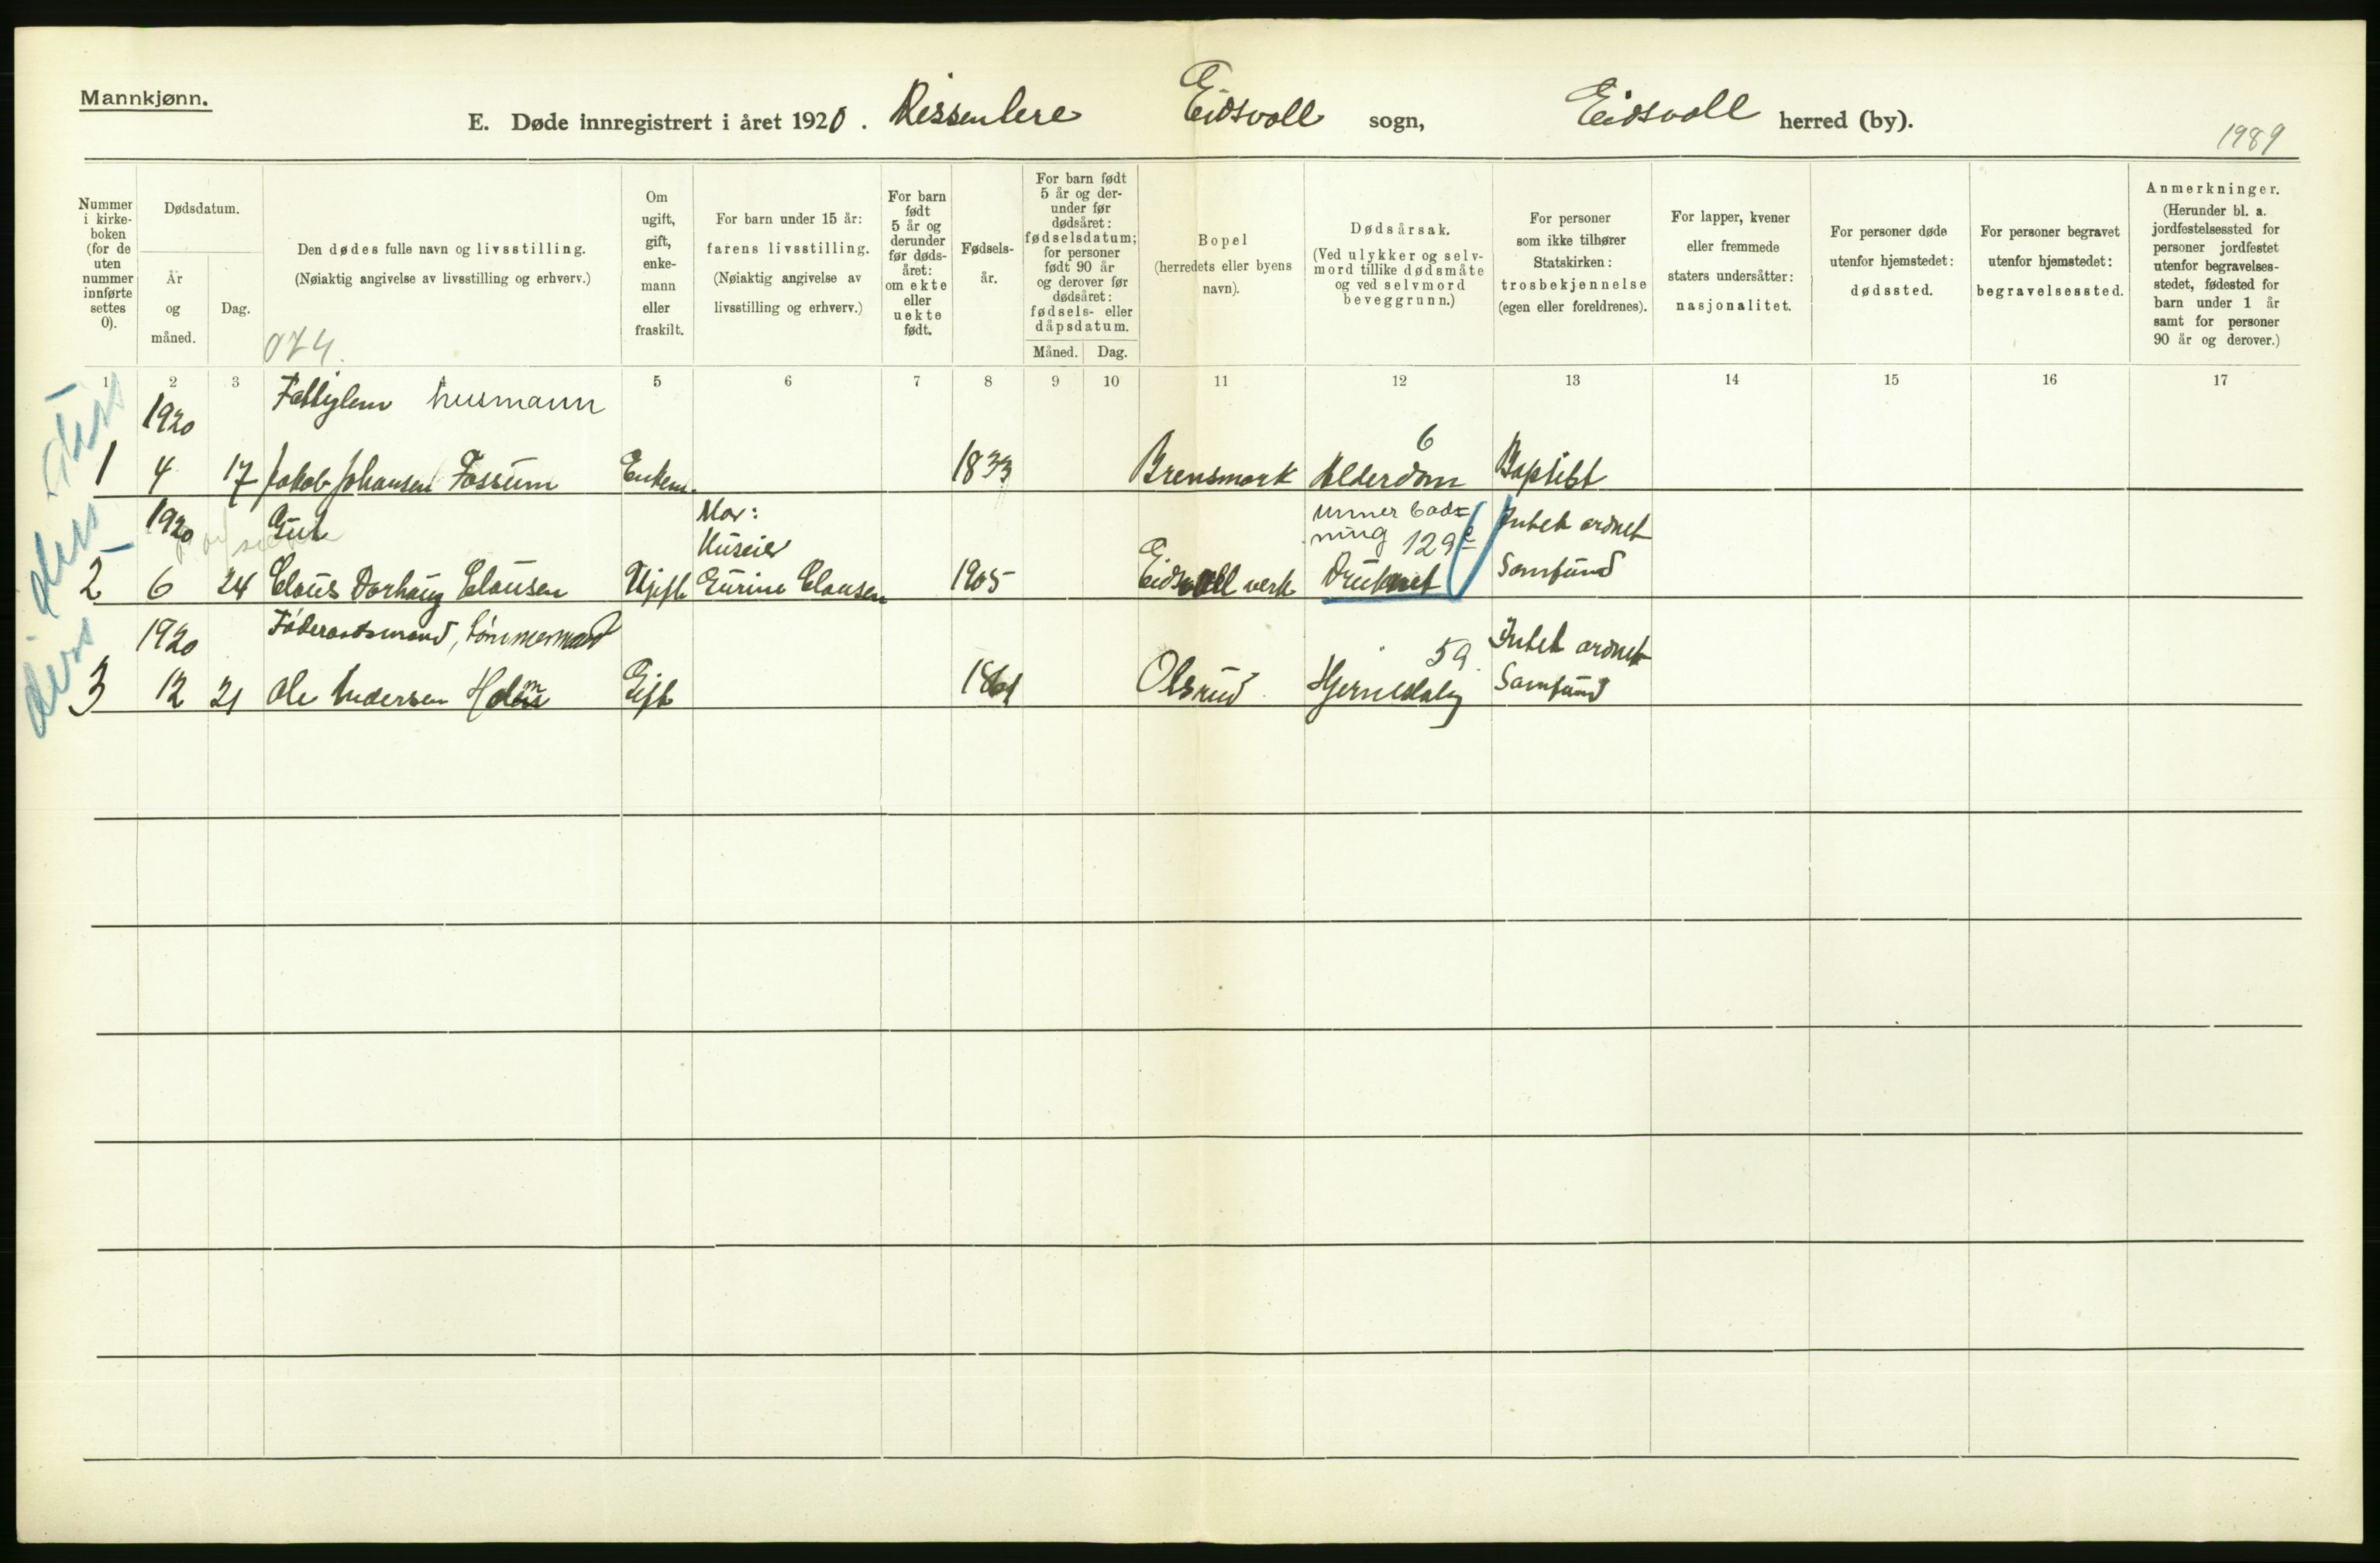 Mannkjønn.
E. Døde innregistrert i året 1920. Dissentere Eidsvoll sogn, Eidsvoll herred (by).
1989
Nummer
i kirke-
boken
(for de
uten
nummer
innførte
settes
0).
Dødsdatum.
År
og
måned.
Dag.
Den dødes fulle navn og livsstilling.
(Nøiaktig angivelse av livsstilling og erhverv.)
074.
Om
ugift,
gift,
enke-
mann
eller
fraskilt.
For barn under 15 år:
farens livsstilling.
(Nøiaktig angivelse av
livsstilling og erhverv.)
For barn
født
5 år og
derunder
før døds-
året:
om ekte
eller
uekte
født.
Fødsels-
år.
For barn født
5 år og der-
under før
dødsåret:
fødselsdatum;
for personer
født 90 år
og derover før
dødsåret:
fødsels- eller
dåpsdatum.
Måned. Dag.
Bopel
(herredets eller byens
navn).
Dødsårsak.
(Ved ulykker og selv-
mord tillike dødsmåte
og ved selvmord
beveggrunn.)
For personer
som ikke tilhører
Statskirken:
trosbekjennelse
(egen eller foreldrenes).
For lapper, kvener
eller fremmede
staters undersåtter:
nasjonalitet.
For personer døde
utenfor hjemstedet:
dødssted.
For personer begravet
utenfor hjemstedet:
begravelsessted.
Anmerkninger.
(Herunder bl. a.
jordfestelsessted for
personer jordfestet
utenfor begravelses-
stedet, fødested for
barn under 1 år
samt for personer
90 år og derover.)
1 2 3 5 6 7 8 9 10 11 12 13 14 15 16 17
1920 husmann
6
1 4 17 Jakob Johansen Fossum Enkem. 1833 Brensmork Alderdom Baptist
1920 Gut Mor: unner bad= Intet ordnet
Huseier ning 129
2 6 24 Claus Dorhaug Clausen Ugift Gurine Clausen 1905 Eidsvoll verk Druknet Samfund
1920 Føderaadsmand, tømmermand 59 Intet ordnet
3 12 21 Ole Andersen Gift 1861 Olsrud Samfund